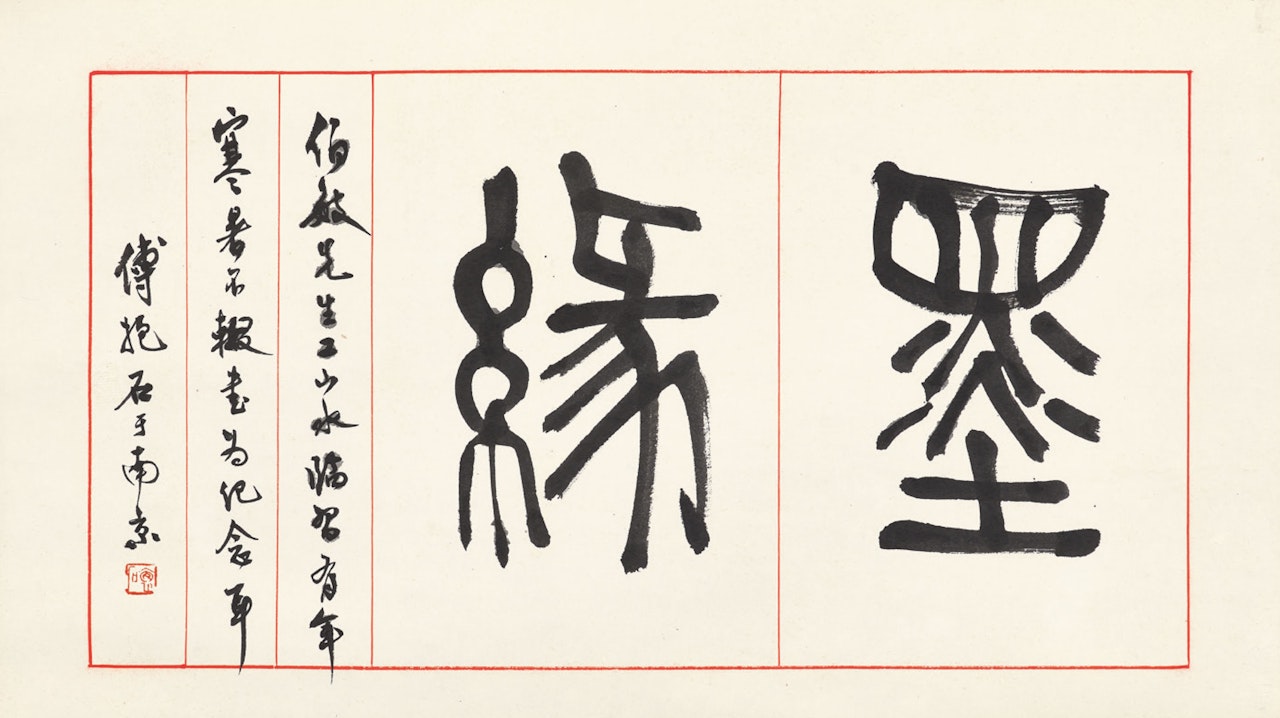 墨
緣
伯敏先生工山水臨習有年
寒暑不輟書為纪念耳
傅抱石于南京